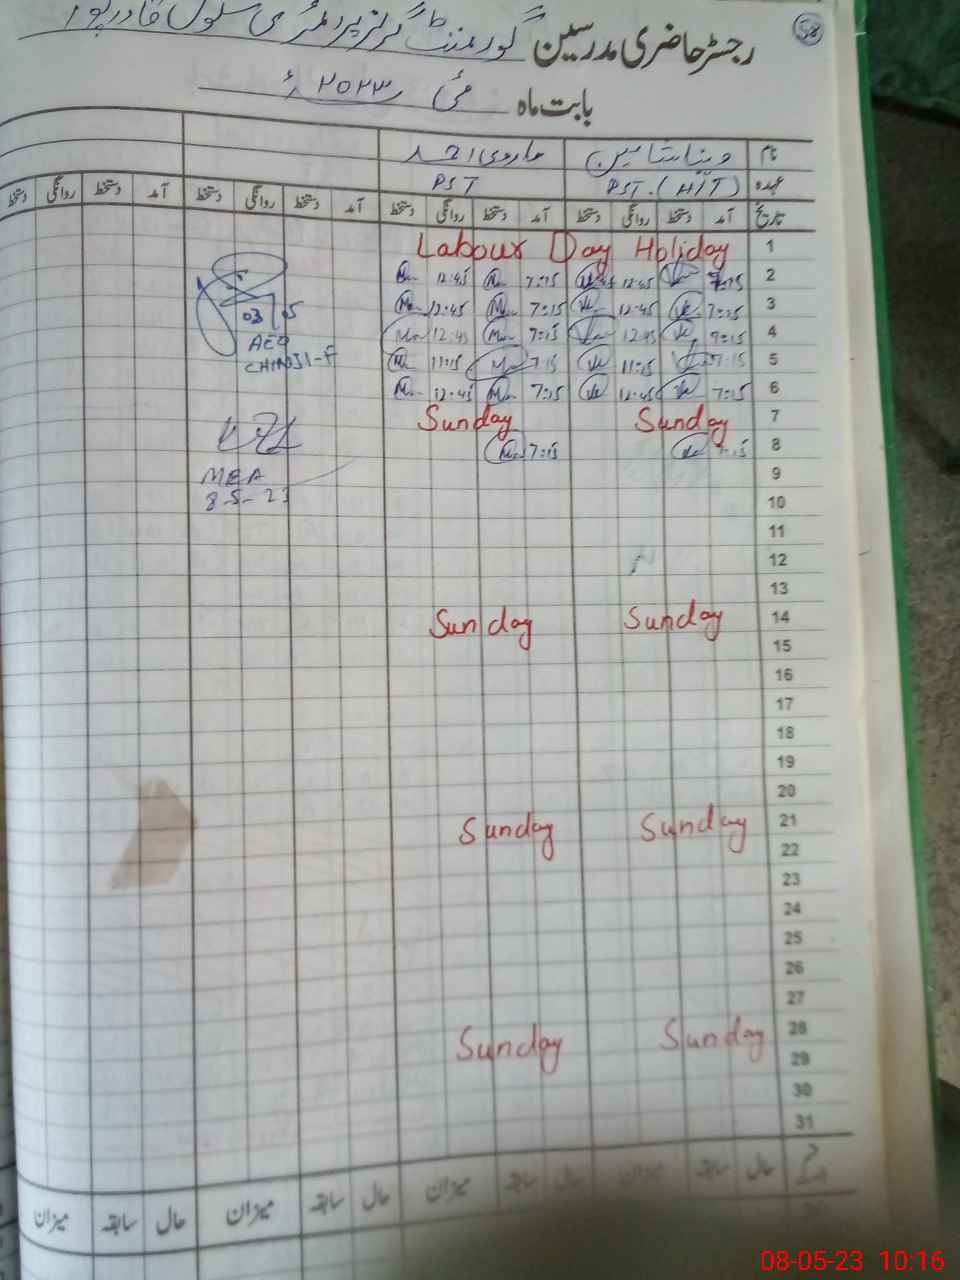 رجسٹر حاضری مدرسین گورنمنٹ گرلز پرائمری سکول قادر پور
بابت ماہ مئی ۲۰۲۳ء
نام
عہدہ PST.(H/T) PST
تاریخ آمد دستخط روانگی دستخط آمد دستخط روانگی دستخط آمد دستخط روانگی دستخط آمد دستخط روانگی دستخط
1 Labour Day Holiday
2 7:15 12:45 7:15 12:45
3 7:15 12:45 7:15 12:45
4 7:15 12:45 7:15 12:45
5 7:15 11:15 7:15 11:15
6 7:15 12:45 7:15 12:45
7 Sunday Sunday
8 7:15 7:15
9
10
11
12
13
14 Sunday Sunday
15
16
17
18
19
20
21 Sunday Sunday
22
23
24
25
26
27
28 Sunday Sunday
29
30
31
03 05
AEO
MEA
8-5-23
حال سابقہ میزان حال سابقہ میزان حال سابقہ میزان حال سابقہ میزان
08-05-23 10:16